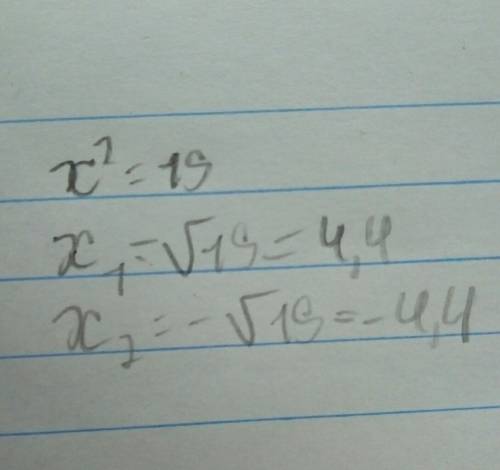 x² = 19
x₁ = √19 = 4,4
x₂ = -√19 = -4,4